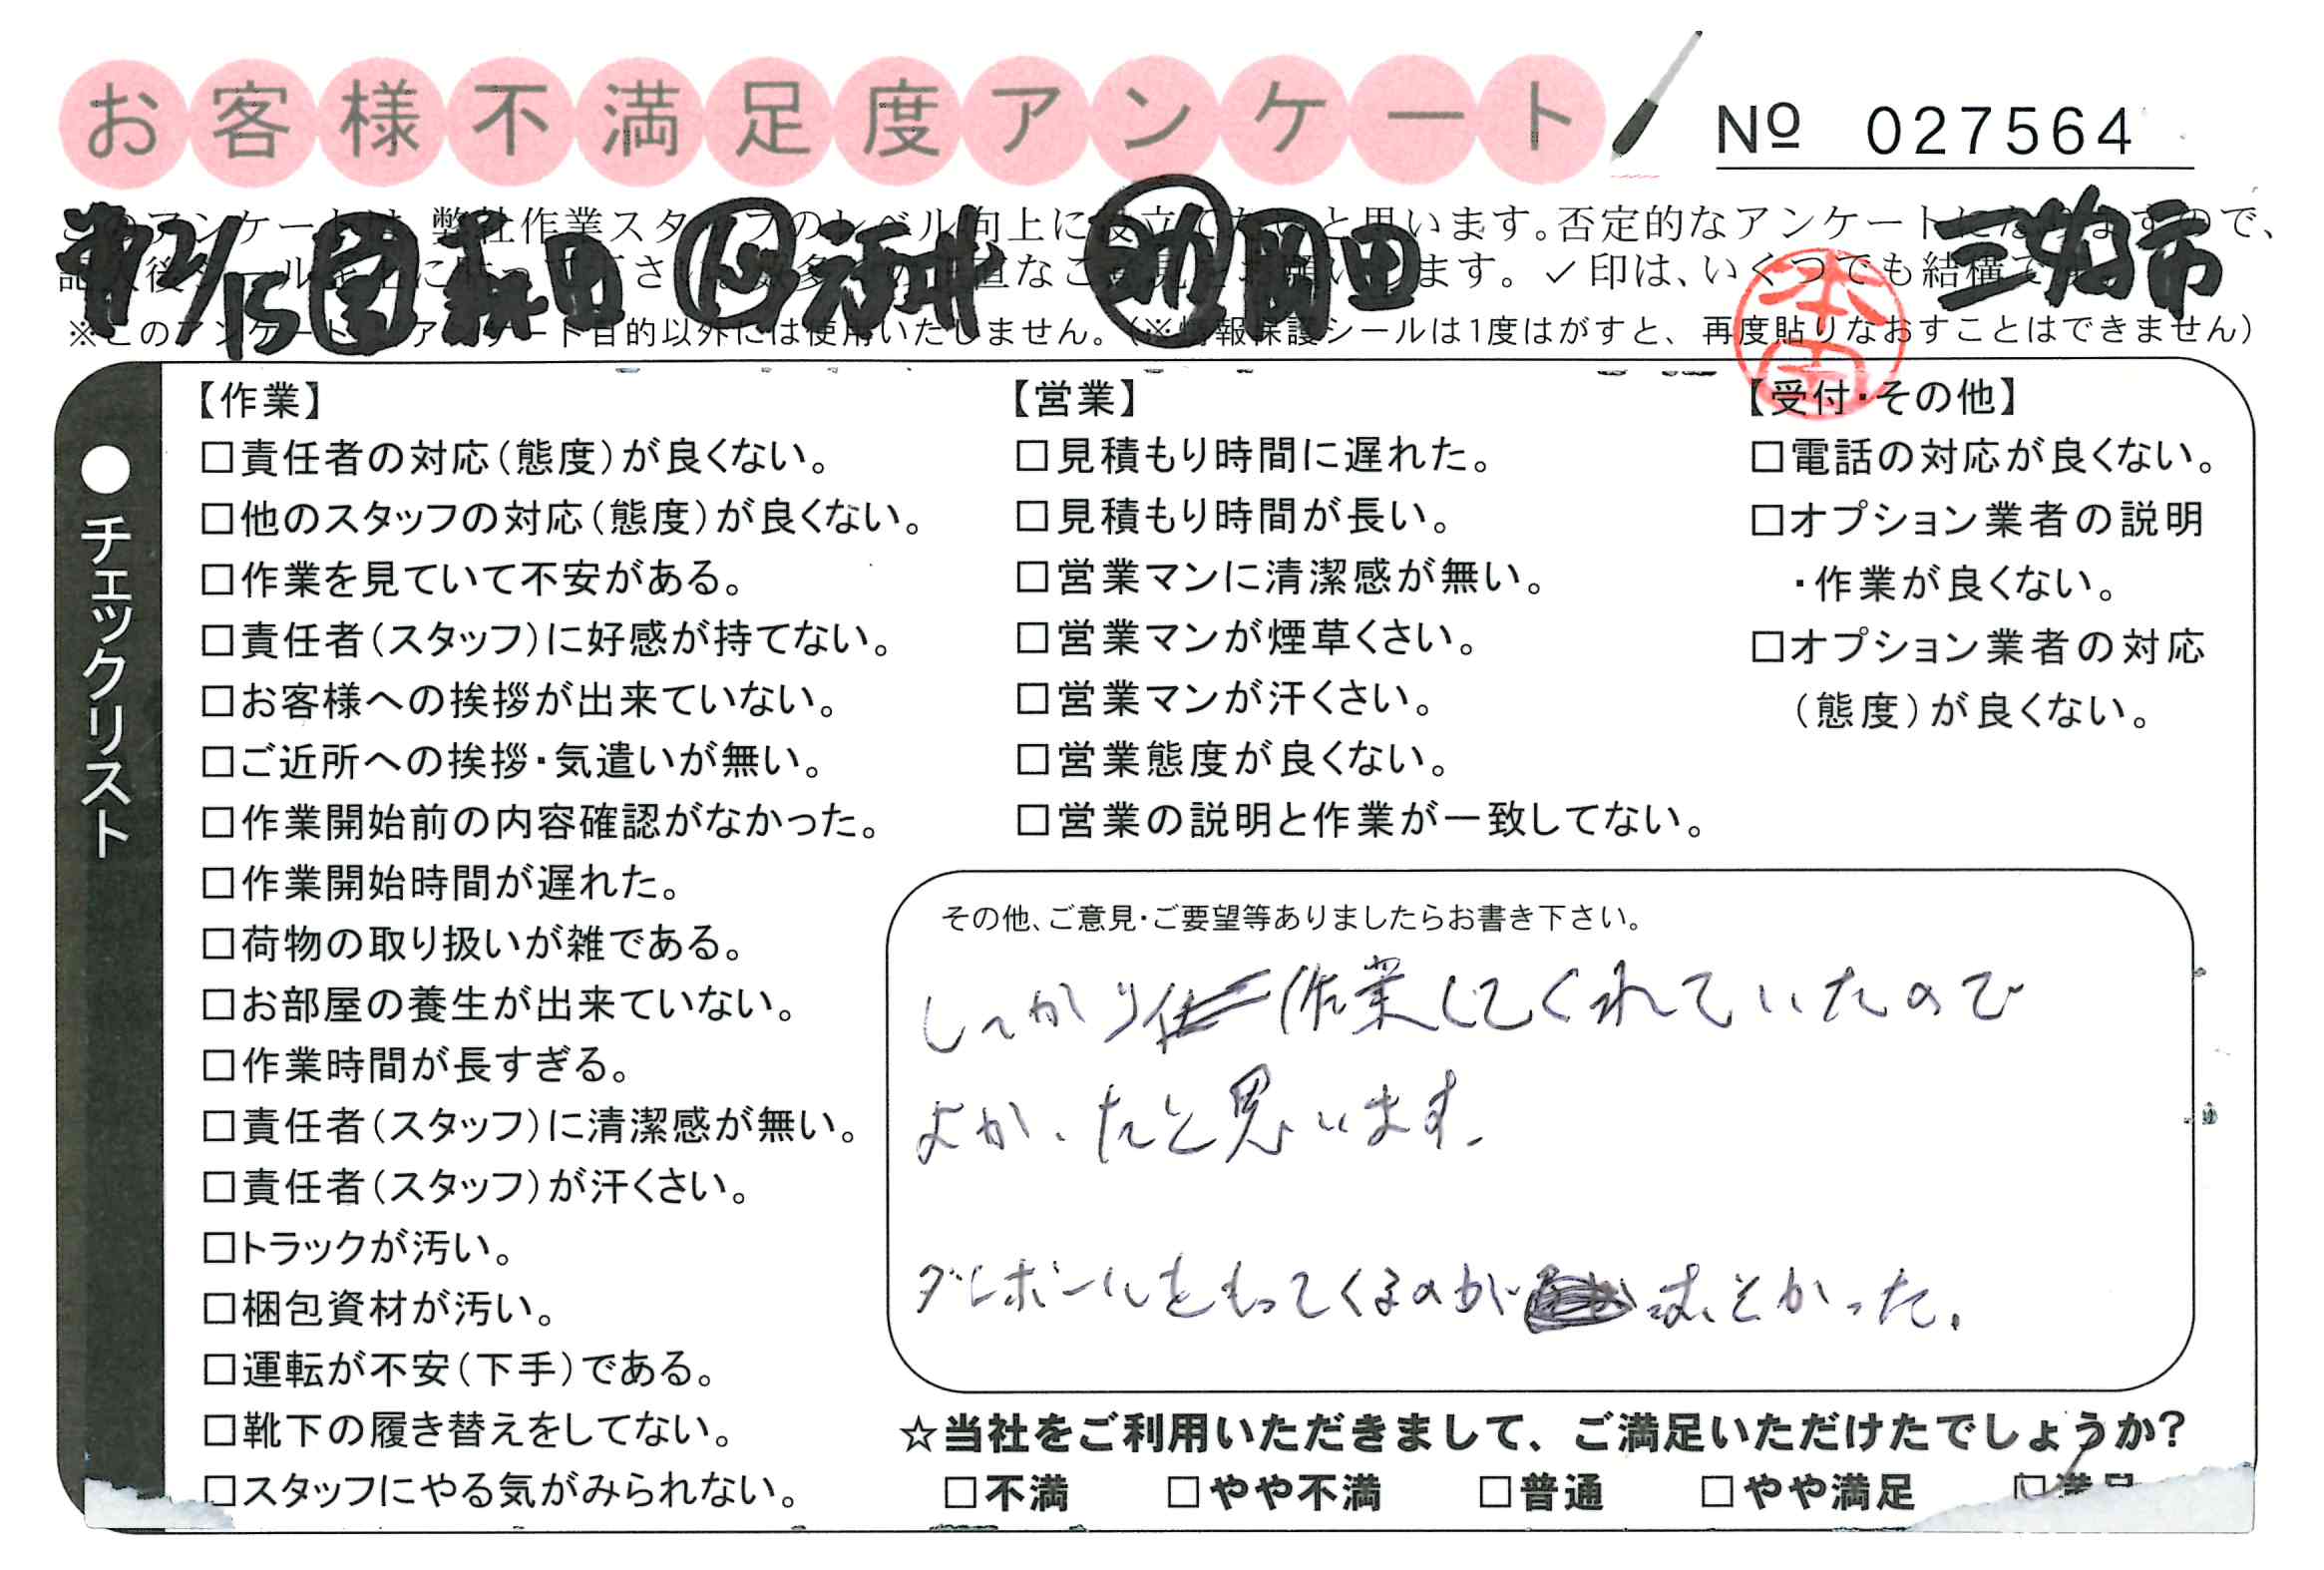 お客様不満足度アンケート
№ 027564
2/15 森田 福井 岡田 三好市
※このアンケート アンケート目的以外には使用いたしません。(※情報保護シールは1度はがすと、再度貼りなおすことはできません)
本田
●チェックリスト
【作業】
□責任者の対応(態度)が良くない。
□他のスタッフの対応(態度)が良くない。
□作業を見ていて不安がある。
□責任者(スタッフ)に好感が持てない。
□お客様への挨拶が出来ていない。
□ご近所への挨拶・気遣いが無い。
□作業開始前の内容確認がなかった。
□作業開始時間が遅れた。
□荷物の取り扱いが雑である。
□お部屋の養生が出来ていない。
□作業時間が長すぎる。
□責任者(スタッフ)に清潔感が無い。
□責任者(スタッフ)が汗くさい。
□トラックが汚い。
□梱包資材が汚い。
□運転が不安(下手)である。
□靴下の履き替えをしてない。
□スタッフにやる気がみられない。
【営業】
□見積もり時間に遅れた。
□見積もり時間が長い。
□営業マンに清潔感が無い。
□営業マンが煙草くさい。
□営業マンが汗くさい。
□営業態度が良くない。
□営業の説明と作業が一致してない。
【受付・その他】
□電話の対応が良くない。
□オプション業者の説明
・作業が良くない。
□オプション業者の対応
(態度)が良くない。
その他、ご意見・ご要望等ありましたらお書き下さい。
しっかり作業してくれていたので
よかったと思います。
ダンボールをもってくるのが おそかった。
☆当社をご利用いただきまして、ご満足いただけたでしょうか?
□不満 □やや不満 □普通 □やや満足 □満足